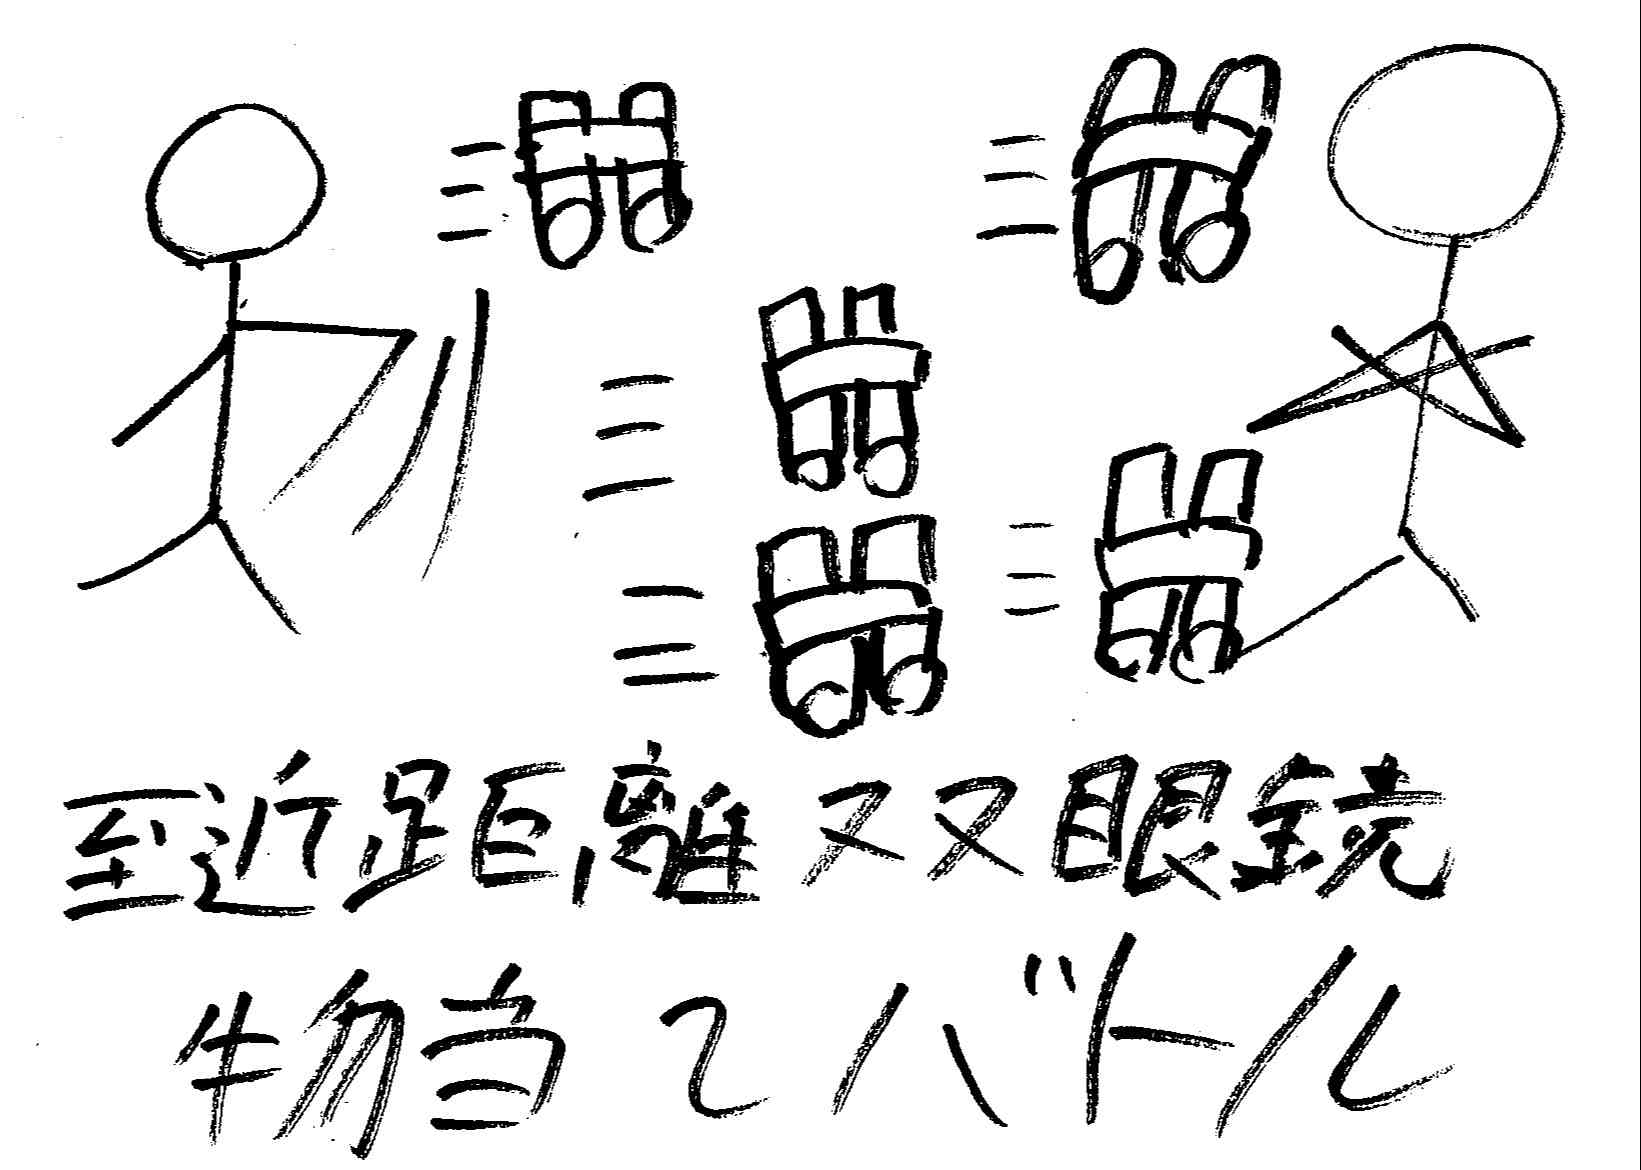 至近距離双眼鏡
物当てバトル